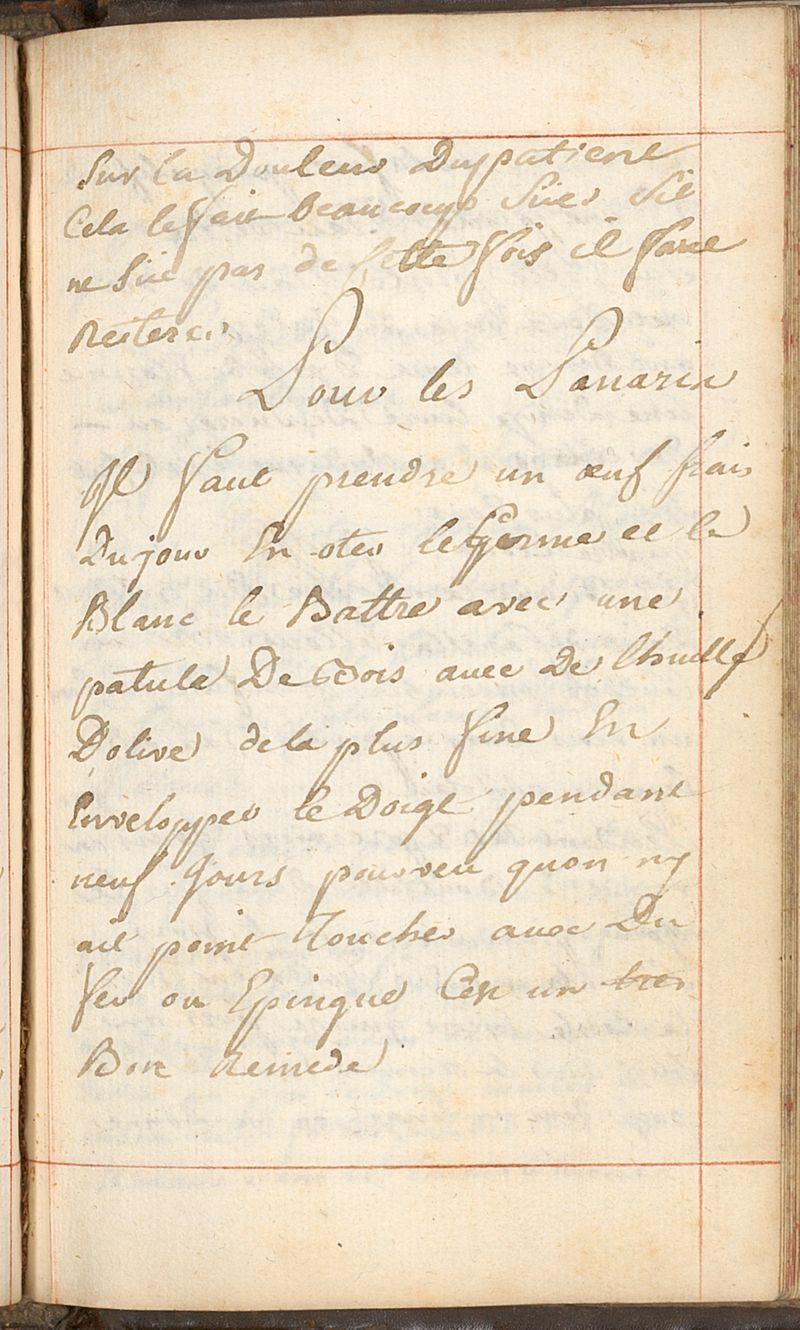 Sur la Douleur Du patient
Cela le fait beaucoup Suer Sil
ne Sue pas de Cette fois il faut
Reiterer
Pour les Panaris
Il faut prendre un œuf frais
Du jour En oter le Germe et le
Blanc le Battre avec une
patule De Bois avec De lhuille
Dolive de la plus fine En
Enveloper le Doigt pendant
neuf Jours pourveu quon ny
ait point Toucher avec Du
fer ou Epingue Cest un tres
Bon Remede